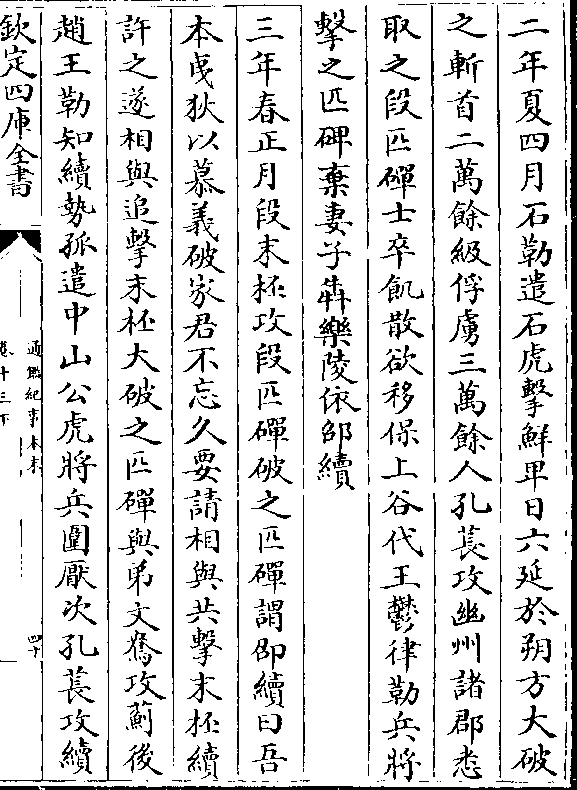 二年夏四月石勒遣石虎擊鮮卑日六延於朔方大破
之斬首二萬餘級俘虜三萬餘人孔萇攻幽州諸郡悉
取之段匹磾士卒飢散欲移保上谷代王鬱律勒兵將
擊之匹磾棄妻子犇樂陵依邵續
三年春正月段末柸攻段匹磾破之匹磾謂邵續曰吾
本夷狄以慕義破家君不忘久要請相與共擊末柸續
許之遂相與追擊末柸大破之匹磾與弟文鴦攻薊後
趙王勒知續勢孤遣中山公虎將兵圍厭次孔萇攻續
欽定四庫全書
通鑑紀事本末
卷十三下
四十